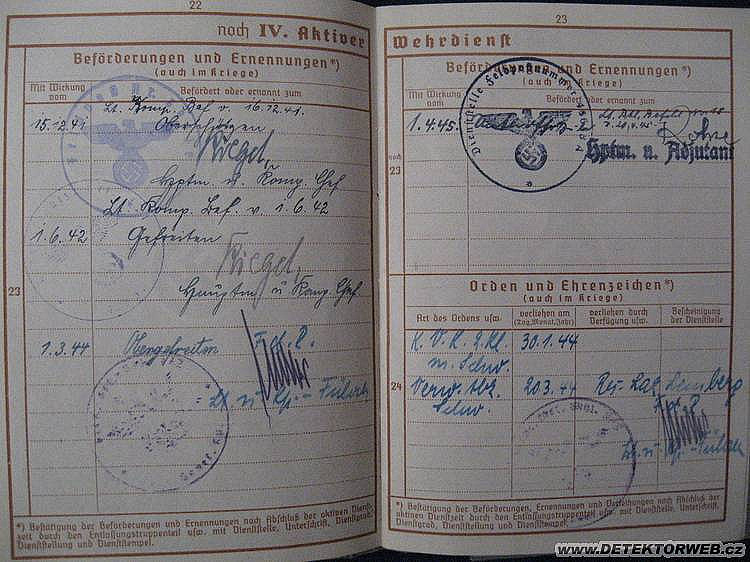 22
noch IV. Aktiver
Beförderungen und Ernennungen*)
(auch im Kriege)
Mit Wirkung vom
Befördert oder ernannt zum
Lt. Komp. Bef. v. 16.12.41.
15.12.41 Oberschützen
Riegel
Hptm. u. Komp. Chef
Lt. Komp. Bef. v. 1.6.42
1.6.42 Gefreiten
Riegel
23
Hauptm u. Komp. Chef
1.3.44 Obergefreiten
Lt u Kp.-Führer
*) Bestätigung der Beförderungen und Ernennungen nach Abschluß der aktiven Dienst-
zeit durch den Entlassungstruppenteil usw. mit Dienststelle, Unterschrift, Dienstgrad,
Dienststellung und Dienststempel.
23
Wehrdienst
Beförderungen und Ernennungen*)
(auch im Kriege)
Befördert oder ernannt zum
Dienststelle Feldpostnummer
1.4.45.
Hptm. u. Adjutant
noch
23
Orden und Ehrenzeichen*)
(auch im Kriege)
Art des Ordens usw.
verliehen am
(Tag, Monat, Jahr)
verliehen durch
Verfügung usw.
Bescheinigung
der Dienststelle
K. V. K. 2. Kl. 30.1.44
m. Schw.
24
Verw. Abz. 20.3.44 Res. Laz. Lemberg
Schw.
Lt. u. Kp.-Führer
*) Bestätigung der Beförderungen, Ernennungen und Verleihungen nach Abschluß der
aktiven Dienstzeit durch den Entlassungstruppenteil usw. mit Dienststelle, Unterschrift,
Dienstgrad, Dienststellung und Dienststempel.
www.DETEKTORWEB.cz